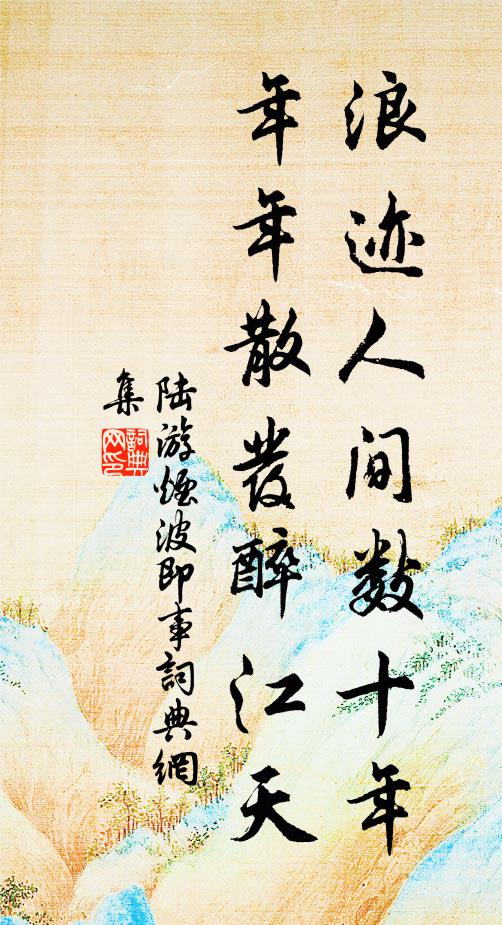 浪迹人间数十年
年年散发醉江天
陆游烟波即事词典网
集
詞典
网印